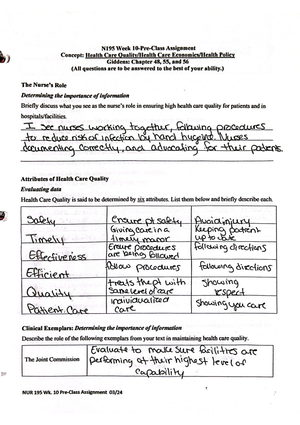 N195 Week 10-Pre-Class Assignment
Concept: Health Care Quality/Health Care Economics/Health Policy
Giddens: Chapter 48, 55, and 56
(All questions are to be answered to the best of your ability.)
The Nurse's Role
Determining the importance of information
Briefly discuss what you see as the nurse's role in ensuring high health care quality for patients and in
hospitals/facilities.
I see nurses working together, following procedures
to reduce risk of infection by hand hygiene. Nurses
documenting correctly, and advocating for their patients.
Attributes of Health Care Quality
Evaluating data
Health Care Quality is said to be determined by six attributes. List them below and briefly describe each.
Safety Ensure pt safety Avoid injury
Timely Giving care in a timely manor Keeping patient up to date
Effectiveness Ensure procedures are being followed following directions
Efficient follow procedures following directions
Quality treats the pt with same level of care showing respect
Patient. Care individualized care showing you care
Clinical Exemplars: Determining the importance of information
Describe the role of the following exemplars from your text in maintaining health care quality.
The Joint Commission Evaluate to make sure facilities are
performing at their highest level of
capability
NUR 195 Wk. 10 Pre-Class Assignment 03/24